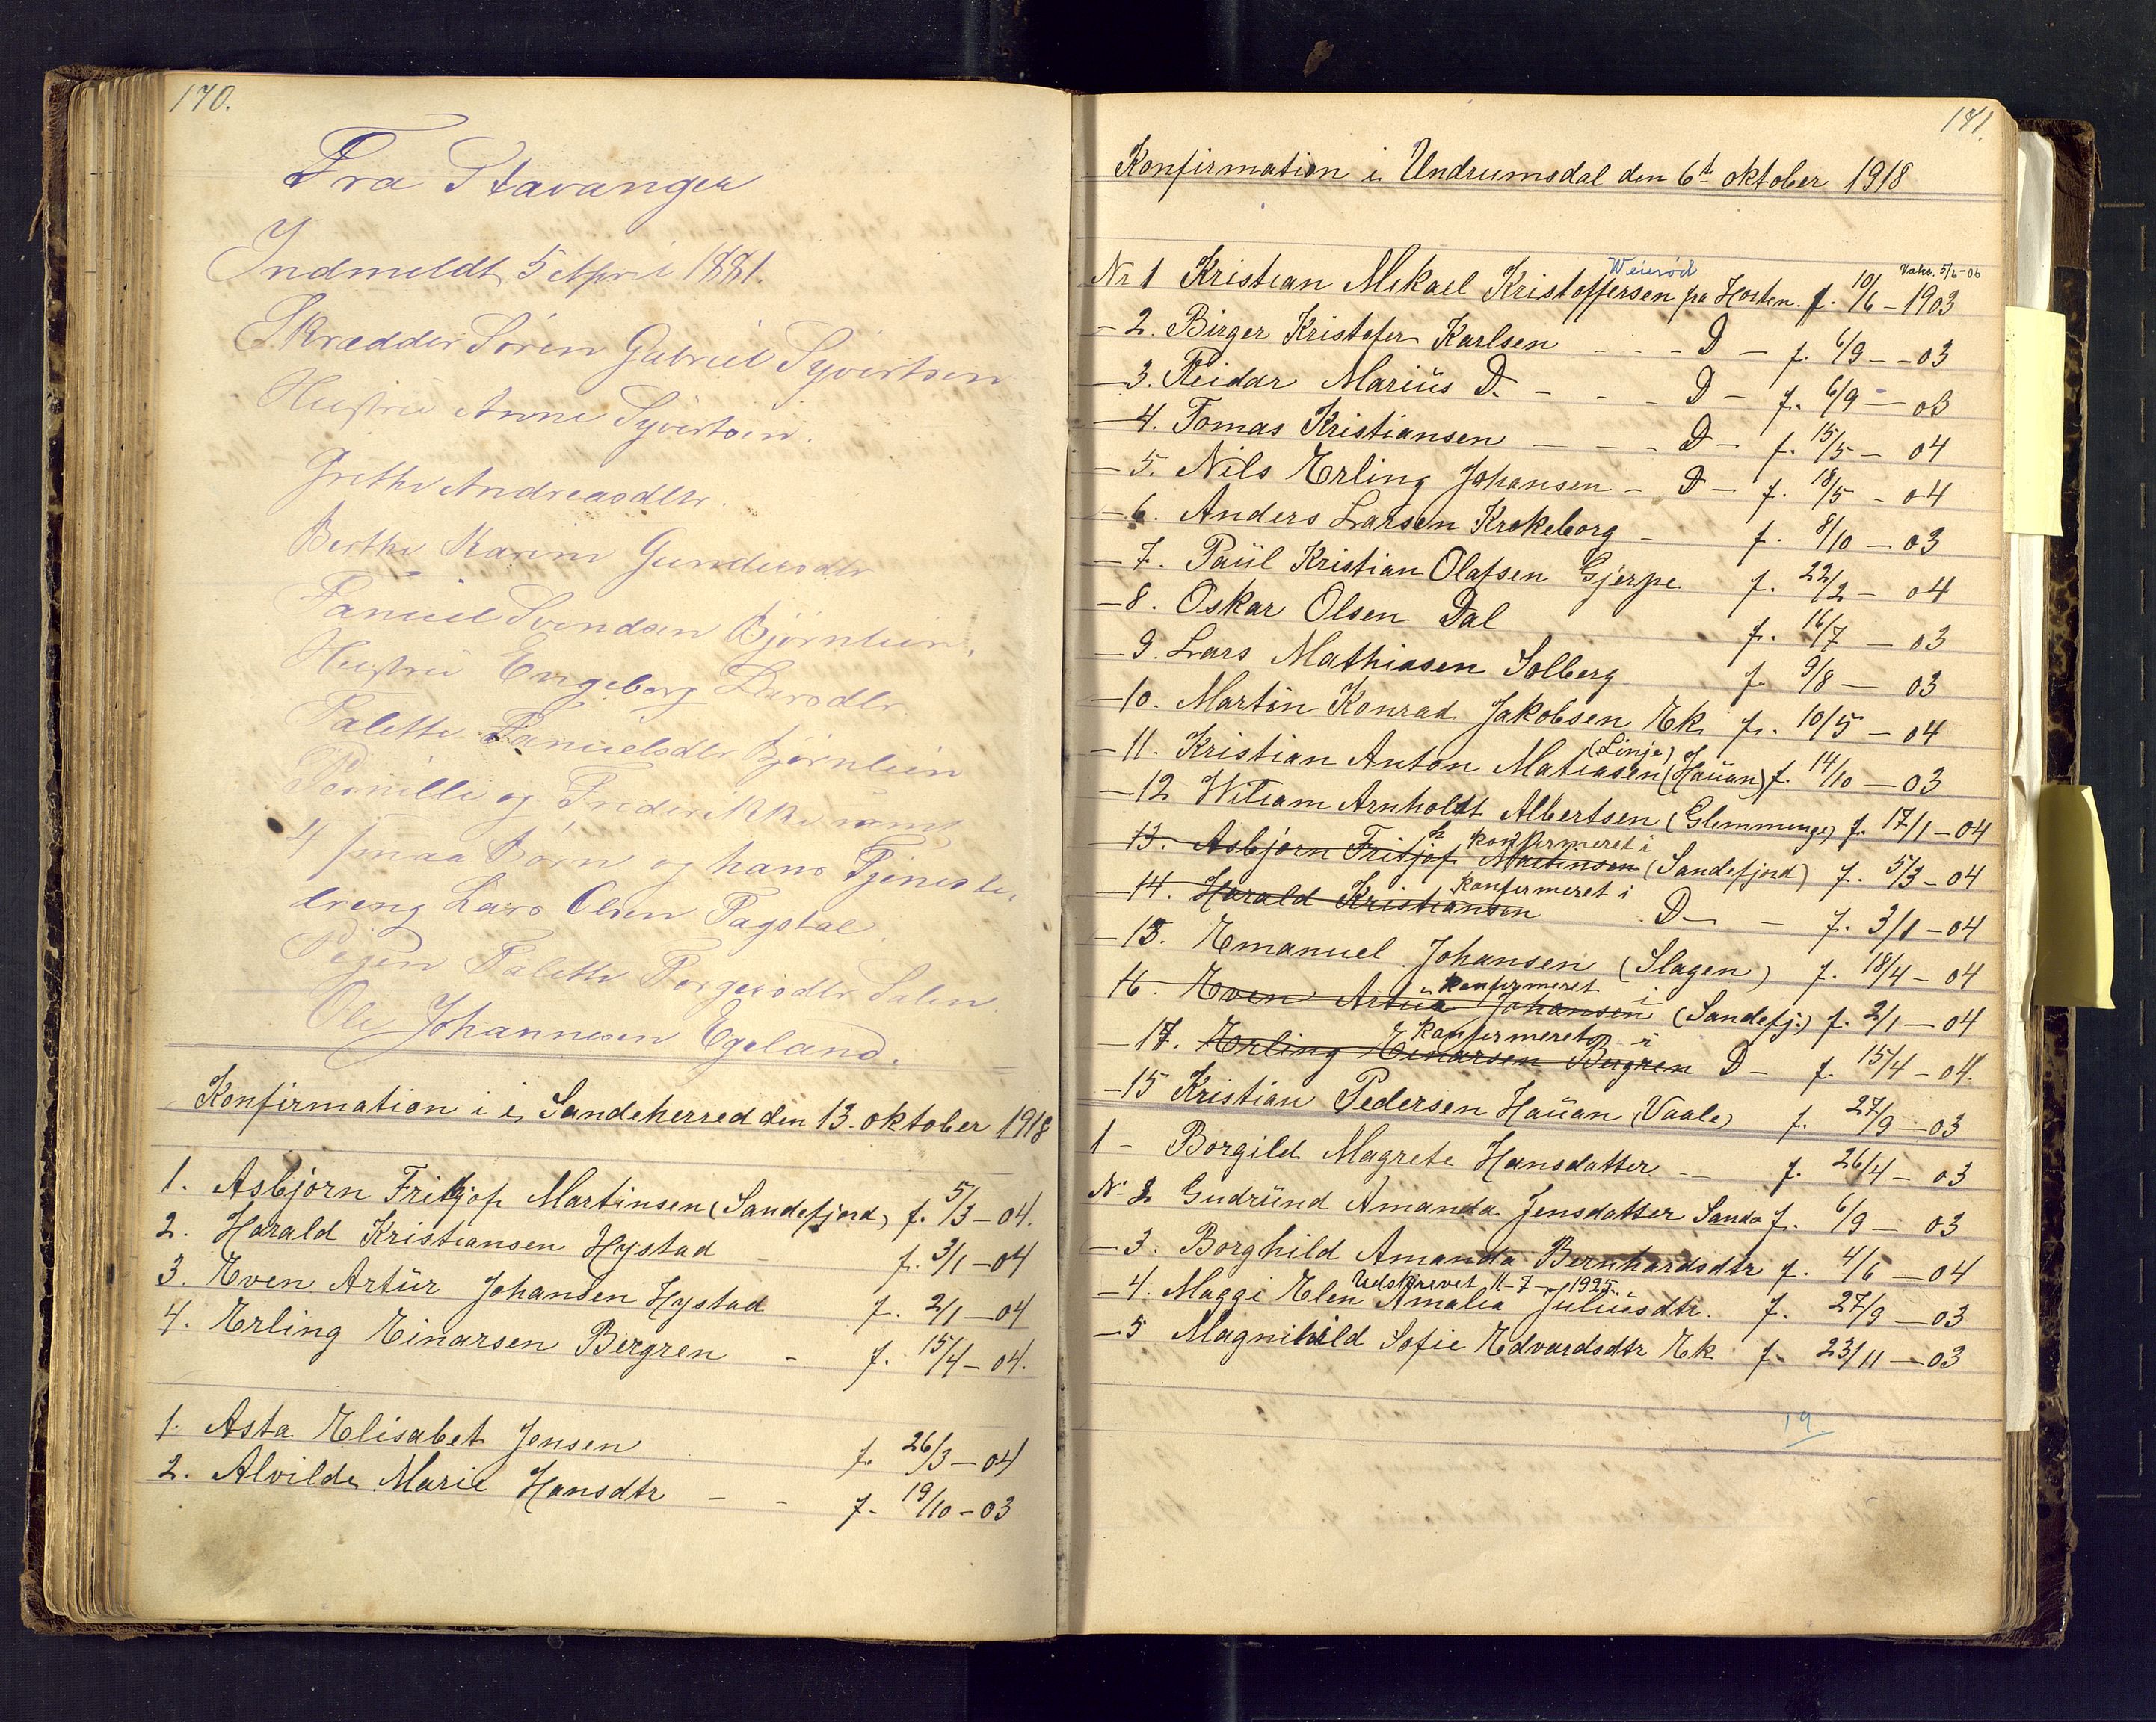 170.
Fra Stavanger
Indmeldt 5 April 1881.
Skrædder Sören Gabriel Syvertsen
Hustru Anne Syvertsen.
Grethe Andreasdtr.
Berthe Karine Gundersdtr
Tarald Svendsen Björnlien.
Hustru Engeborg Larsdtr
Talette Danielsdtr Björnlien
Pernille og Frederikke samt
4 smaa Börn og hans Tjeneste-
dreng Lars Olsen Fagstal
Pigen Talette Torgersdtr Salen.
Ole Johannesen Egeland.
Konfirmation i i Sandeherred den 13. oktober 1918
1. Asbjørn Fritjof Martinsen (Sandefjord) f. 5/3 - 04.
2. Harald Kristiansen Hystad - f. 3/1 - 04
3. Even Artür Johansen Hystad f. 2/1 - 04
4. Erling Einarsen Bergren - f. 15/4 - 04.
1. Asta Elisabet Jensen f. 26/3 - 04
2. Alvilde Marie Hansdtr - - f. 19/10 - 03
171.
Konfirmation i Undrumsdal den 6t oktober 1918
Weierød
Nr 1 Kristian Mikael Kristoffersen fra Horten. f. 10/6 - 1903
- 2. Birger Kristofer Karlsen - - - D - f. 6/9 - - 03
- 3. Reidar Mariüs D. - - - D - f. 6/9 - 03
- 4. Tomas Kristiansen - - - D - f. 15/5 - 04
- 5. Nils Erling Johansen - D - f. 18/5 - 04
- 6. Anders Larsen Krokeborg - f. 8/10 - 03
- 7. Paül Kristian Olafsen Gjerpe f. 22/2 - 04
- 8. Oskar Olsen Dal f. 16/7 - 03
- 9. Lars Mathiasen Solberg f. 9/8 - 03
- 10. Martin Konrad Jakobsen Ek f. 10/5 - 04
(Linje)
- 11. Kristian Anton Matiasen (Haüan) f. 14/10 - 03
- 12 Wiliam Arnholdt Albertsen (Glemminge) f. 17/1 - 04
konfirmeret i
- 13. Asbjørn Fritjof Martinsen (Sandefjord) f. 5/3 - 04
konfirmeret i
- 14. Harald Kristiansen D - - f. 3/1 - 04
- 13. Emanuel Johansen (Slagen) f. 18/4 - 04
konfirmeret i
16. Even Artür Johansen (Sandefj.) f. 2/1 - 04
konfirmeret i
- 17. Erling Einarsen Bergren D - f. 15/4 - 04.
- 15 Kristian Pedersen Haüan (Vaale) f. 27/9 - 03
1 - Borgild Magrete Hansdatter - f. 26/4 - 03
Nr 2 Gudründ Amanda Jensdatter Sanda f. 6/9 - 03
- 3. Borghild Amanda Bernhardsdtr f. 4/6 - 04
Udskrevet 11-7-1925.
- 4. Maggi Elen Amalia Juliüsdtr. f. 27/9 - 03
- 5 Magnihild Sofie Edvardsdtr Ek f. 23/11 - 03
19